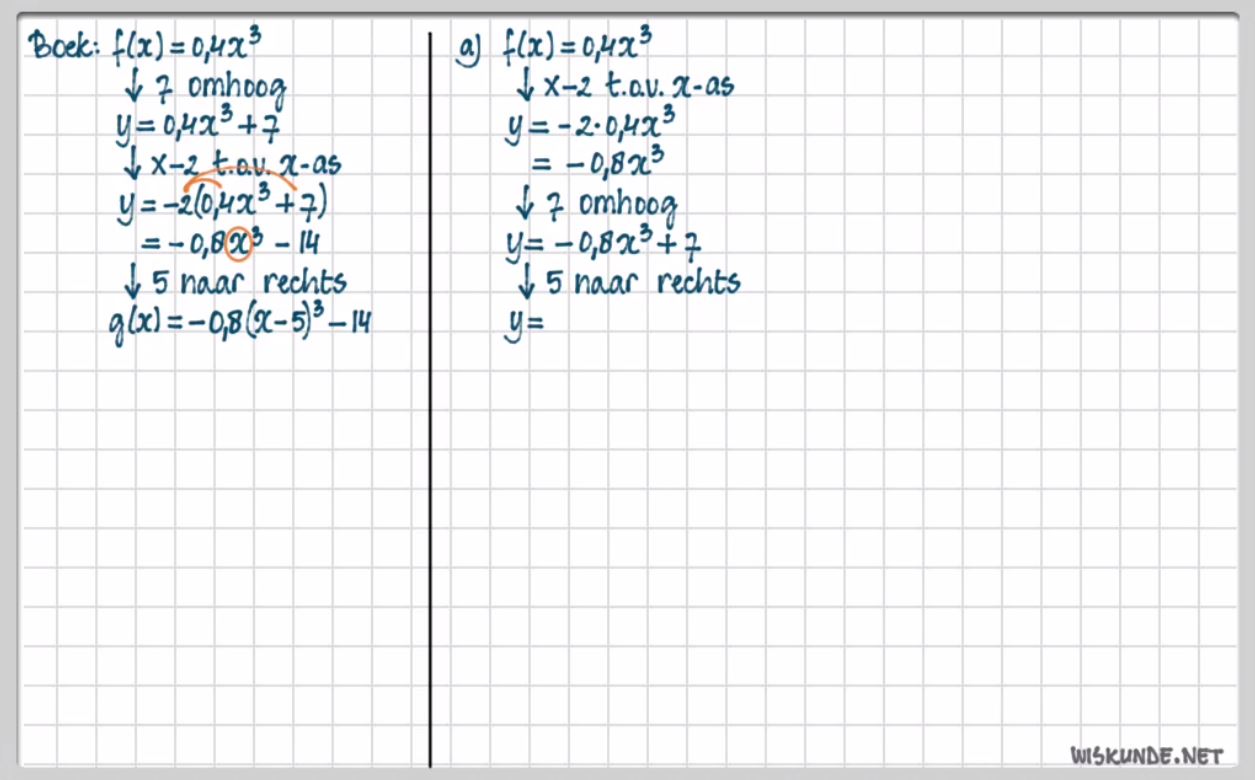 Boek: f(x) = 0,4x³
↓ 7 omhoog
y = 0,4x³ + 7
↓ x-2 t.o.v. x-as
y = -2(0,4x³ + 7)
= -0,8x³ - 14
↓ 5 naar rechts
g(x) = -0,8(x-5)³ - 14
a) f(x) = 0,4x³
↓ x-2 t.o.v. x-as
y = -2·0,4x³
= -0,8x³
↓ 7 omhoog
y = -0,8x³ + 7
↓ 5 naar rechts
y =
WISKUNDE.NET